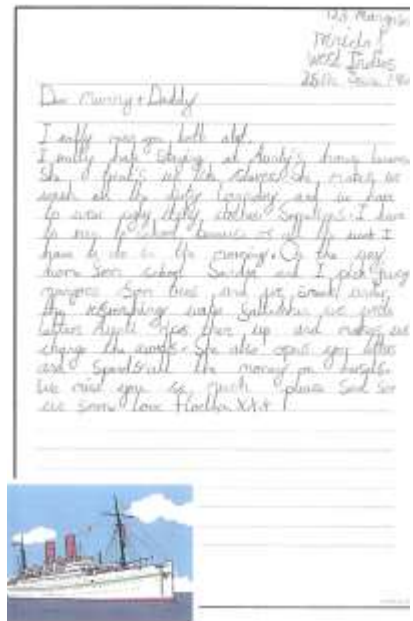 Trinidad
West Indies
Dear Mummy + Daddy
I really miss you both alot.
I really hate staying at Aunty's house because
She treats us like slaves. She makes us
wash all the dirty laundry and we have
to wear ugly itchy clothes. Sometimes I have
to run to school because of all the work I
have to do in the morning. On the way
home from school Sandra and I pick juicy
mangoes from trees and we
the water we write
letters Aunti rips them up and makes us
change the words. She also opens your letters
and Spends all the money on herself.
We miss you so much please Send for
us soon love XXX